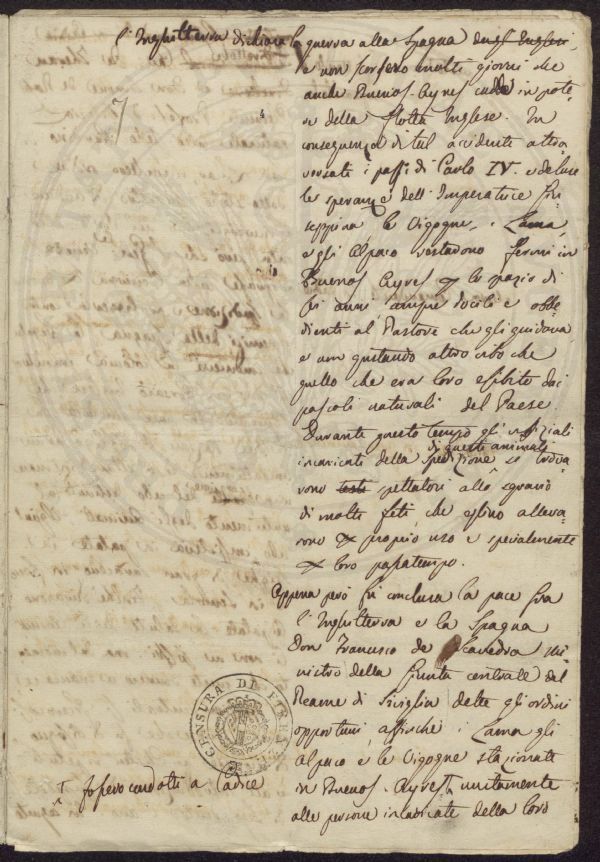 l'Inghilterra dichiara la guerra alla Spagna dagl' Inglesi,
e non scorsero molti giorni che
anche Buenos Ayres cadde in pote=
re della flotta Inglese. In
conseguenza di tal accidente attra=
versati i passi di Carlo IV. e deluse
le speranze dell'Imperatrice Giu=
seppina, le Vigogne, i Lama,
e gli Alpaco restarono fermi in
Buenos Ayres lo spazio di
sei anni, sempre docili e obbe=
dienti al Pastore che gli guidava,
e non gustando altro cibo che
quello che era loro esibito dai
pascoli naturali del Paese
Durante questo tempo gli uffiziali
di questi animali
incaricati della spedizione si trova=
rono spettatori allo sgravio
di molti feti, che essino alleva=
rono proprio uso e specialmente
loro passatempo.
Appena però fu conclusa la pace fra
l'Inghilterra e la Spagna
Don Francesco de Saavedra mi=
nistro della Giunta centrale del
Reame di Siviglia dette gli ordini
opportuni, affinché i Lama gli
Alpaco, e le Vigogne stazionate
in Buenos-Ayres unitamente
alle persone incaricate della loro
fossero condotti a Cadice
7
CENSURA DI